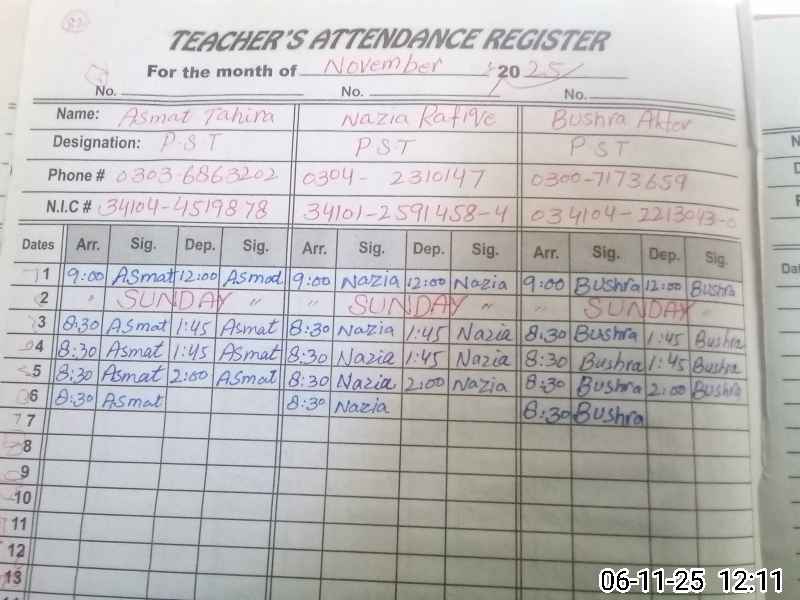 82
TEACHER'S ATTENDANCE REGISTER
For the month of November 2025
No. No. No.
Name: Asmat Tahira Nazia Rafive Bushra Akter
Designation: P.S.T P S T P S T
Phone # 0303-6863202 0304- 2310147 0300-7173659
N.I.C # 34104-4519878 34101-2591458-4 034104-2213043-0
Dates Arr. Sig. Dep. Sig. Arr. Sig. Dep. Sig. Arr. Sig. Dep. Sig.
1 9:00 Asmat 12:00 Asmat 9:00 Nazia 12:00 Nazia 9:00 Bushra 12:00 Bushra
2 " SUNDAY " " SUNDAY " " SUNDAY "
3 8:30 Asmat 1:45 Asmat 8:30 Nazia 1:45 Nazia 8:30 Bushra 1:45 Bushra
4 8:30 Asmat 1:45 Asmat 8:30 Nazia 1:45 Nazia 8:30 Bushra 1:45 Bushra
5 8:30 Asmat 2:00 Asmat 8:30 Nazia 2:00 Nazia 8:30 Bushra 2:00 Bushra
6 8:30 Asmat 8:30 Nazia 8:30 Bushra
7
8
9
10
11
12
13
06-11-25 12:11